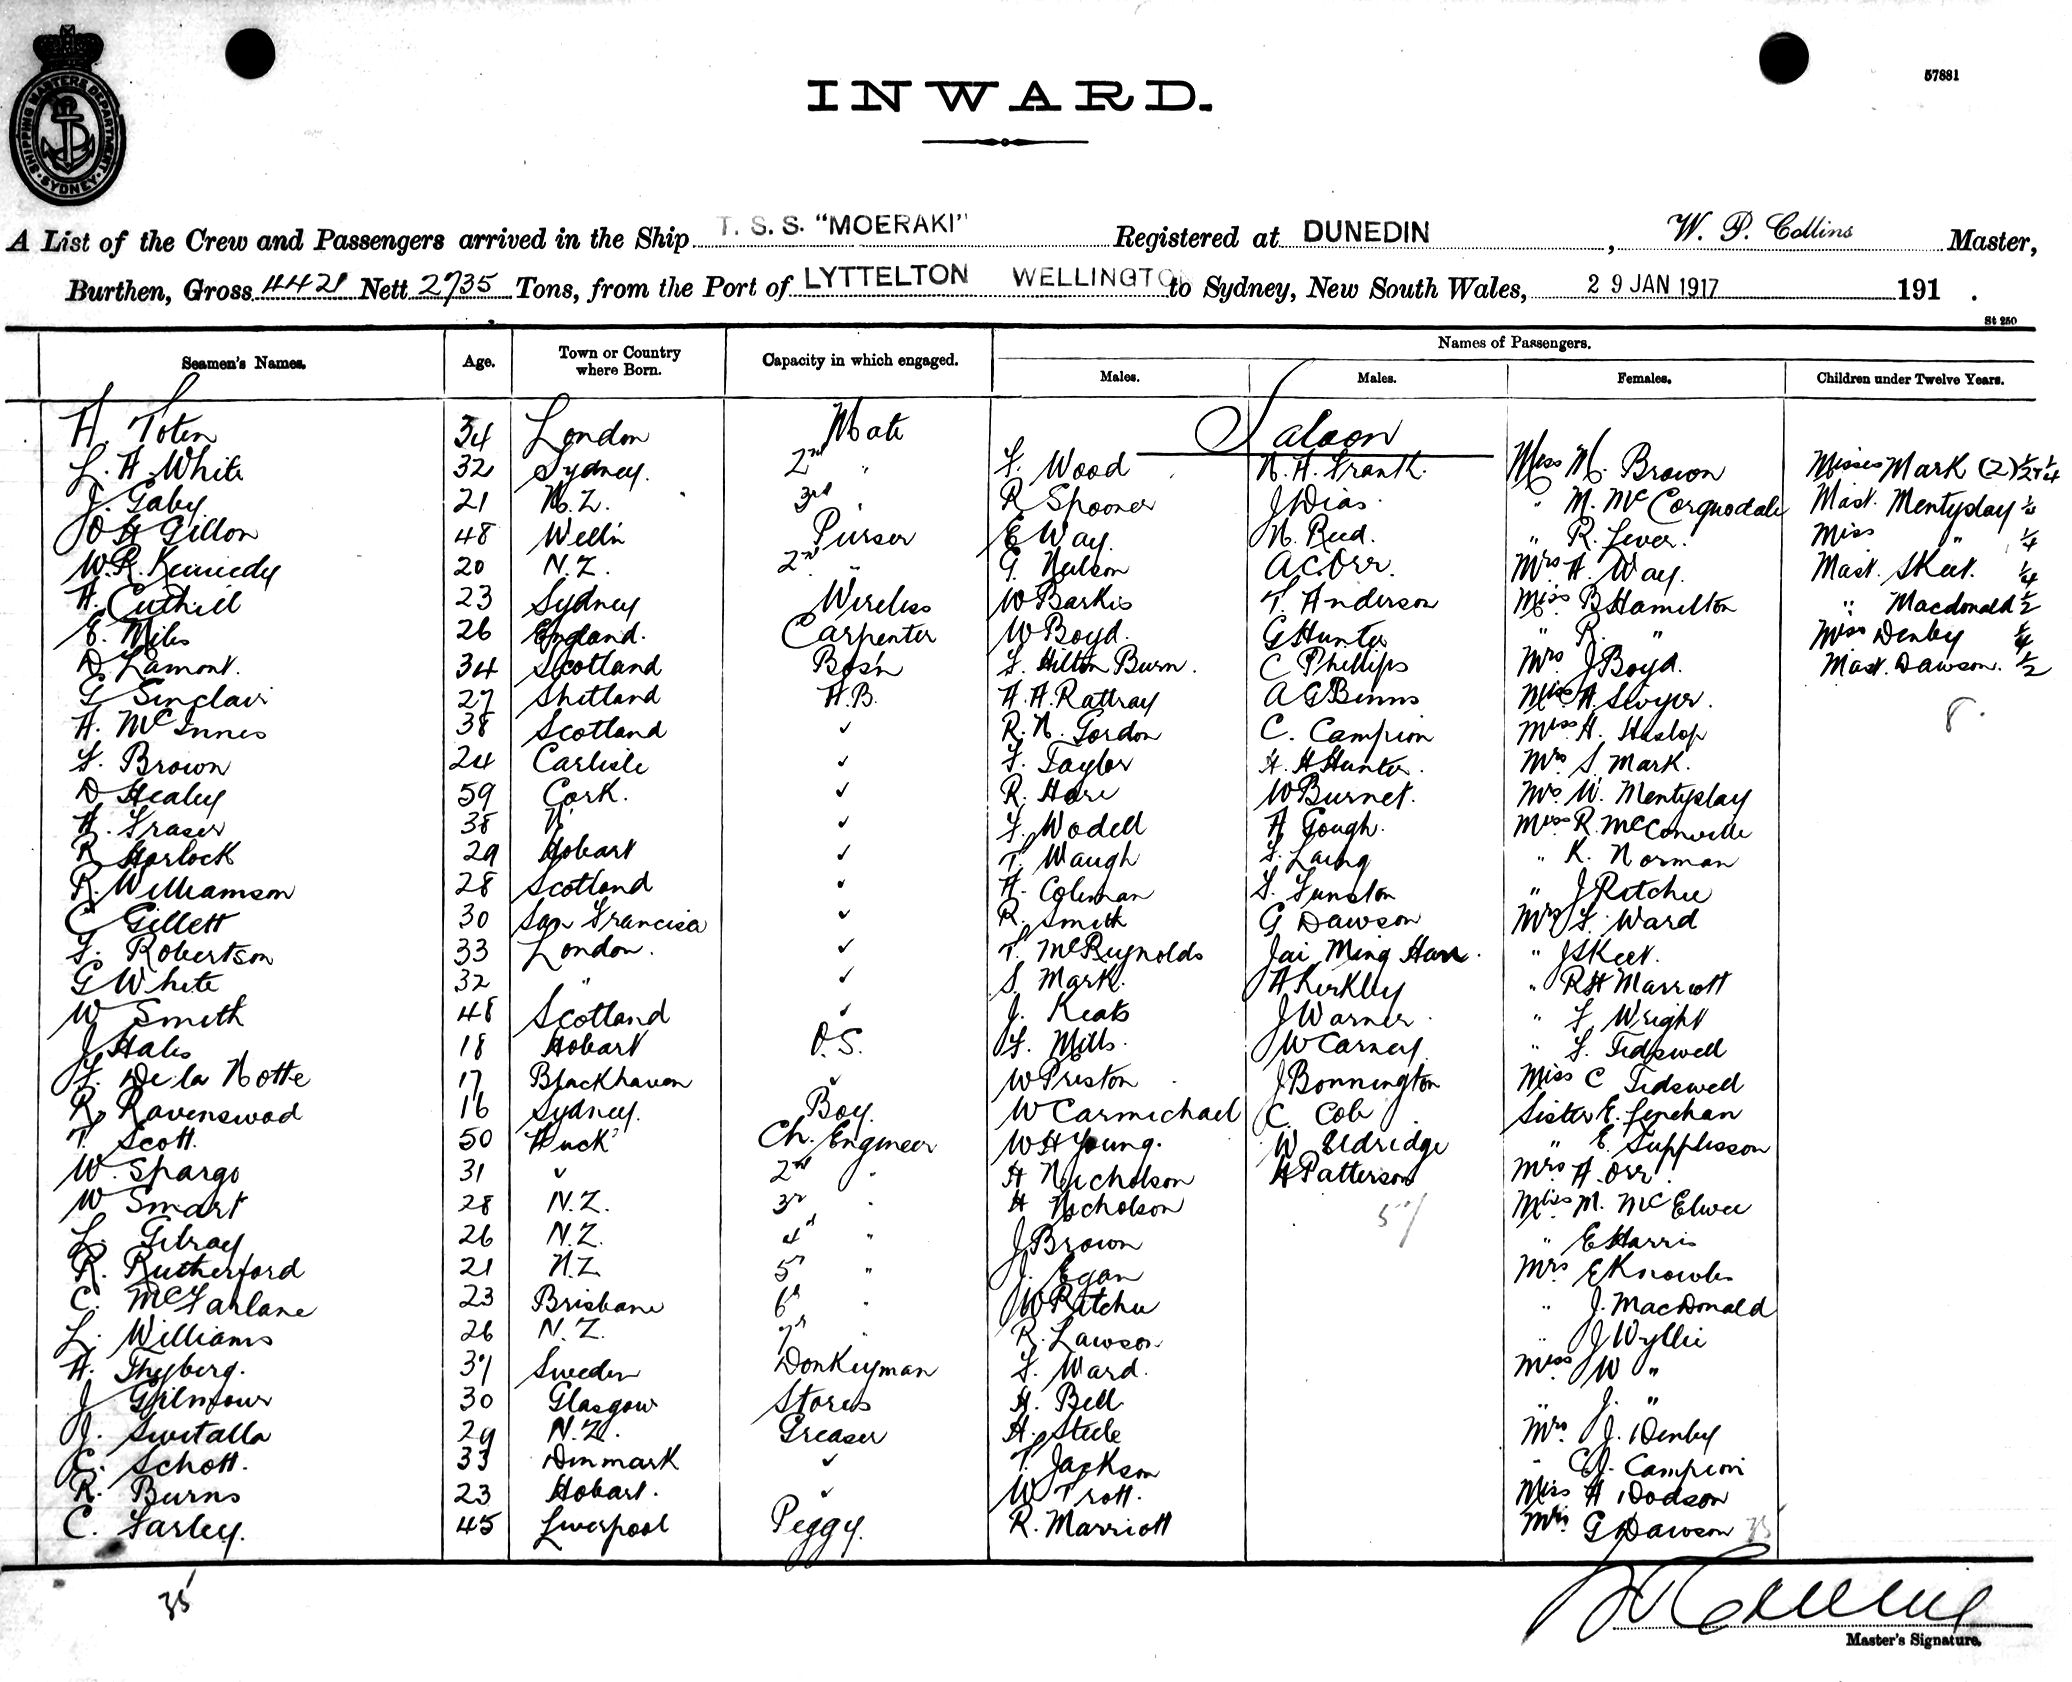 SHIPPING MASTERS DEPARTMENT SYDNEY
57881
INWARD.
A List of the Crew and Passengers arrived in the Ship T. S. S. "MOERAKI" Registered at DUNEDIN, W. P. Collins Master,
Burthen, Gross 4421 Nett 2735 Tons, from the Port of LYTTELTON WELLINGTO to Sydney, New South Wales, 29 JAN 1917 191 .
St 250
Seamen's Names. Age. Town or Country where Born. Capacity in which engaged. Names of Passengers.
Males. Males. Females. Children under Twelve Years.
Saloon
H. Toten 34 London Mate
L. A White 32 Sydney. 2nd " F. Wood N. H. Frank. Miss M. Brown Misses Mark (2) 1/2+1/4
J. Gaby 21 N.Z. 3rd " R Spooner J Dias. " M. McCorquodale Mast. Mentyplay
O H Gillon 48 Well'n Purser E Way. N. Reid. " R. Lever. Miss " 1/4
W. R. Kennedy 20 N.Z. 2nd " G. Neilson A C. Orr. Mrs A. Way. Mast. Skeet. 1/4
A. Cuthill 23 Sydney Wireless W Barkis T. Anderson Miss B Hamilton " Macdonald 1/2
E. Miles 26 England. Carpenter W Boyd. G Hunter " R. " Miss Denby 1/4
D Lamont. 34 Scotland Bos'n F. Hilton Burn. C Phillips Mrs J Boyd. Mast. Dawson. 1/2
G Sinclair 27 Shetland A.B. A. A. Rattray A G Binns Miss A. Swyer. 8.
A. McInnes 38 Scotland ✓ R. N. Gordon C. Campion Miss A. Heslop
F. Brown 24 Carlisle ✓ F. Taylor A. A Hunter. Mrs S. Mark.
D Healey 59 Cork. ✓ R. Hare W Burnet. Mrs W. Mentyplay
A. Fraser 38 ✓ F. Wodell A Gough. Miss R. McConville
R Horlock 29 Hobart ✓ T. Waugh F. Laing " K. Norman
R. Williamson 28 Scotland ✓ A. Coleman S. Funston " J Ritchie
C Gillett 30 San Francisco ✓ R. Smith G Dawson Mrs F. Ward
F. Robertson 33 London. ✓ T. McReynolds Jai Ming Harr. " J Skeet.
G White 32 " ✓ S. Mark. A Kirkley " R H Marriott
W Smith 48 Scotland ✓ J. Keats J Warner. " F Wright
J Hales 18 Hobart O.S. F. Mills. W Carney. " F. Tidswell
F. De la Motte 17 Blackhaven ✓ W Preston J Bonnington Miss C Tidswell
R. Ravenswood 16 Sydney. Boy. W Carmichael C. Cole Sister E. Lenehan
T. Scott. 50 Ch. Engineer W H Young. W Eldridge " E Supplisson
W. Spargo 31 ✓ 2nd " A Nicholson A Patterson Mrs A. Orr.
W Smart 28 N.Z. 3rd " A Nicholson 57 Miss M. McElwee
L. Gilray 26 N.Z. 4th " J Brown " E Harris
R. Rutherford 21 N.Z 5th " J. Egan Mrs E Knowles
C. McFarlane 23 Brisbane 6th " W Ritchie " J. MacDonald
L. Williams 26 N.Z. 7th " R. Lawson " J Wyllie
A. Thyberg. 37 Sweden Donkeyman F. Ward. Miss W "
J Gilmour 30 Glasgow Stores A. Bell " J. "
J. Switalla 29 N.Z. Greaser A. Steele Mrs. J. Denby
C. Schott. 33 Denmark ✓ T. Jackson " C J. Campion
R. Burns 23 Hobart. ✓ W Trott. Miss A Dodson
C. Farley. 45 Liverpool Peggy. R. Marriott Mrs. G Dawson 35
35
W P Collins
Master's Signature.